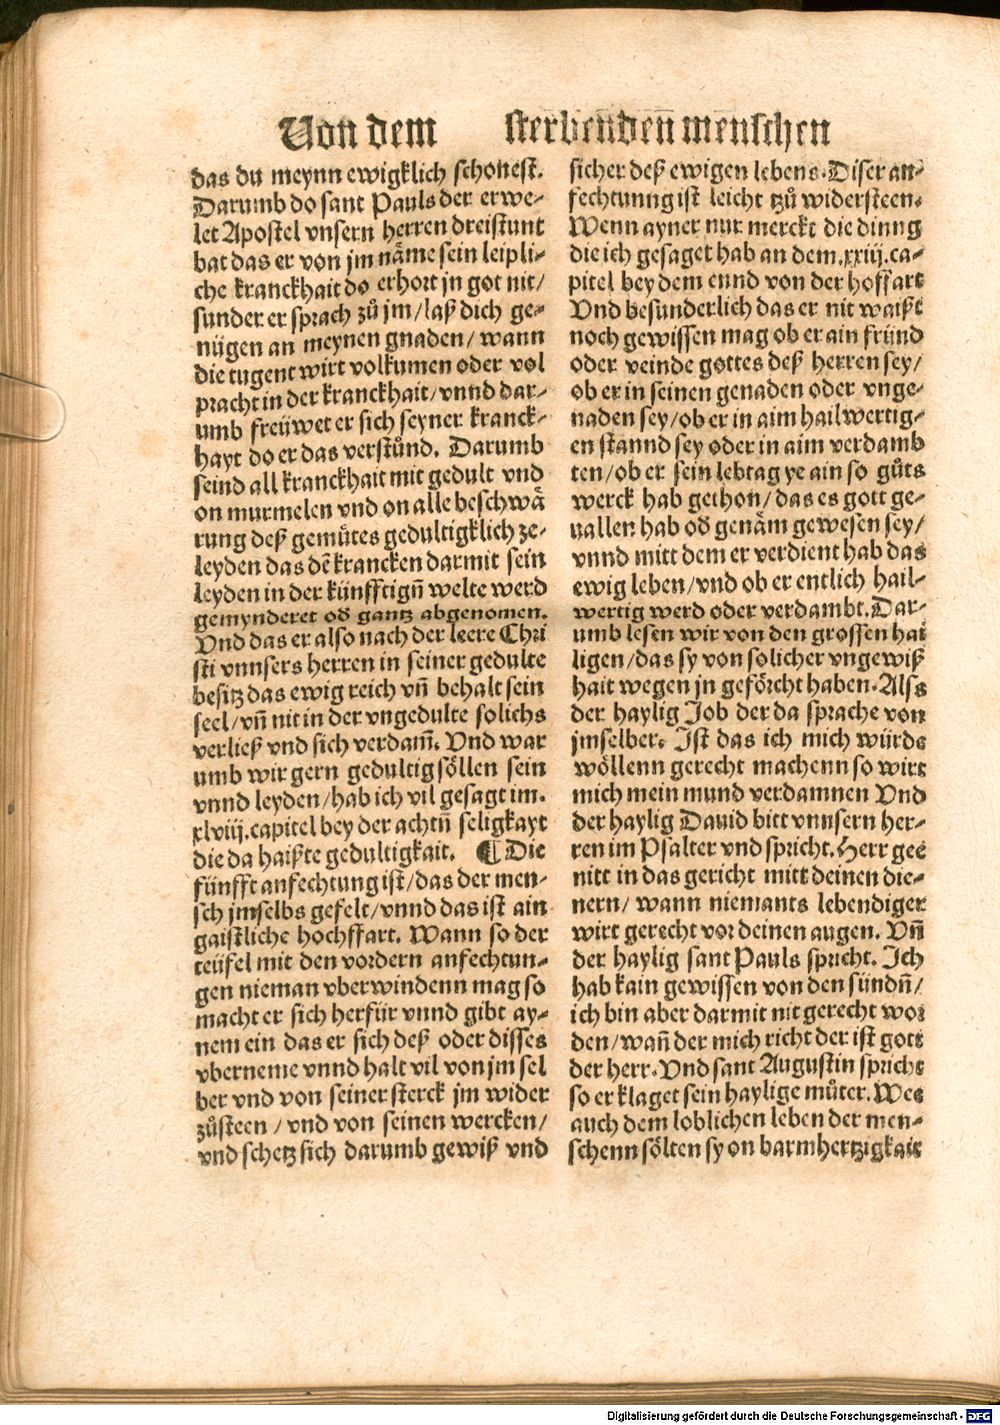 Von dem sterbenden menschen
das du meynn ewigklich schonest.
Darumb do sant Pauls der erwe-
let Apostel vnsern herren dreistunt
bat das er von jm näme sein leipli-
che kranckhait do erhort jn got nit/
sunder er sprach zů jm/laß dich ge-
nügen an meynen gnaden/ wann
die tugent wirt volkumen oder vol
pracht in der kranckhait/vnnd dar-
umb freüwet er sich seyner kranck-
hayt do er das verstůnd. Darumb
seind all kranckhait mit gedult vnd
on murmelen vnd on alle beschwä
rung deß gemůtes gedultigklich ze-
leyden das dē krancken darmit sein
leyden in der künfftigñ welte werd
gemynderet od gantz abgenomen.
Vnd das er also nach der leere Chri
sti vnnsers herren in seiner gedulte
besitz das ewig reich vñ behalt sein
seel/vñ nit in der vngedulte solichs
verließ vnd sich verdam̄. Vnd war
umb wir gern gedultig söllen sein
vnnd leyden/hab ich vil gesagt im.
xlviij.capitel bey der achtñ seligkayt
die da haißte gedultigkait. ¶ Die
fünfft anfechtung ist/das der men-
sch jmselbs gefelt/vnnd das ist ain
gaistliche hochffart. Wann so der
teüfel mit den vordern anfechtun-
gen nieman vberwindenn mag so
macht er sich herfür vnnd gibt ay-
nem ein das er sich deß oder disses
vberneme vnnd halt vil von jm sel
ber vnd von seiner sterck jm wider
zůsteen/vnd von seinen wercken/
vnd schetz sich darumb gewiß vnd
sicher deß ewigen lebens.Diser an-
fechtunng ist leicht tzů widersteen.
Wenn ayner nur merckt die dinng
die ich gesaget hab an dem.xxiij.ca-
pitel bey dem ennd von der hoffart
Vnd besunderlich das er nit waißt
noch gewissen mag ob er ain fründ
oder veinde gottes deß herren sey/
ob er in seinen genaden oder vnge-
naden sey/ob er in aim hailwertig-
en stannd sey oder in aim verdamb
ten/ob er sein lebtag ye ain so gůts
werck hab gethon/das es gott ge-
uallen hab od genäm gewesen sey/
vnnd mitt dem er verdient hab das
ewig leben/vnd ob er entlich hail-
wertig werd oder verdambt.Dar-
umb lesen wir von den grossen hai
ligen/das sy von solicher vngewiß
hait wegen jn geförcht haben.Alss
der haylig Job der da sprache von
jmselber. Ist das ich mich würde
wöllenn gerecht machenn so wirt
mich mein mund verdamnen Vnd
der haylig Dauid bitt vnnsern her-
ren im Psalter vnd spricht.Herr gee
nitt in das gericht mitt deinen die-
nern/ wann niemants lebendiger
wirt gerecht vor deinen augen. Vñ
der haylig sant Pauls spricht. Ich
hab kain gewissen von den sündñ/
ich bin aber darmit nit gerecht wor
den/wañ der mich richt der ist gott
der herr.Vnd sant Augustin spricht
so er klaget sein haylige můter.Wee
auch dem loblichen leben der men-
schenn sölten sy on barmhertzigkait
Digitalisierung gefördert durch die Deutsche Forschungsgemeinschaft - DFG